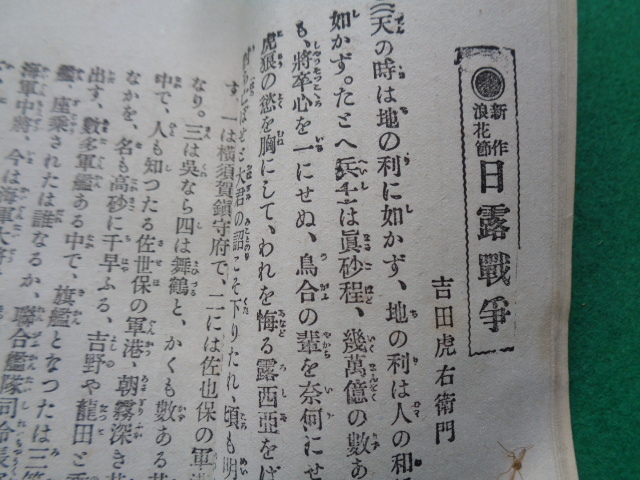 新作
浪花節
日露戰爭
吉田虎右衛門
天の時は地の利に如かず、地の利は人の和
如かず。たとへ兵士は眞砂程、幾萬億の數あ
も、將卒心を一にせぬ、烏合の輩を奈何にせ
虎狼の慾を胸にして、われを侮る露西亞をば
大君の詔こそ下りたれ、頃も明
す、一は横須賀鎭守府で、二には佐也保の軍港
なり。三は呉なら四は舞鶴と、かくも數ある
中で、人も知つたる佐世保の軍港、朝霧深き
なかを、名も高砂に千早ふる、吉野や龍田と
出す、數多軍艦ある中で、旗艦となつたは三笠
艦、座乘されたは誰なるか、聯合艦隊司令長
海軍中將、今は海軍大將